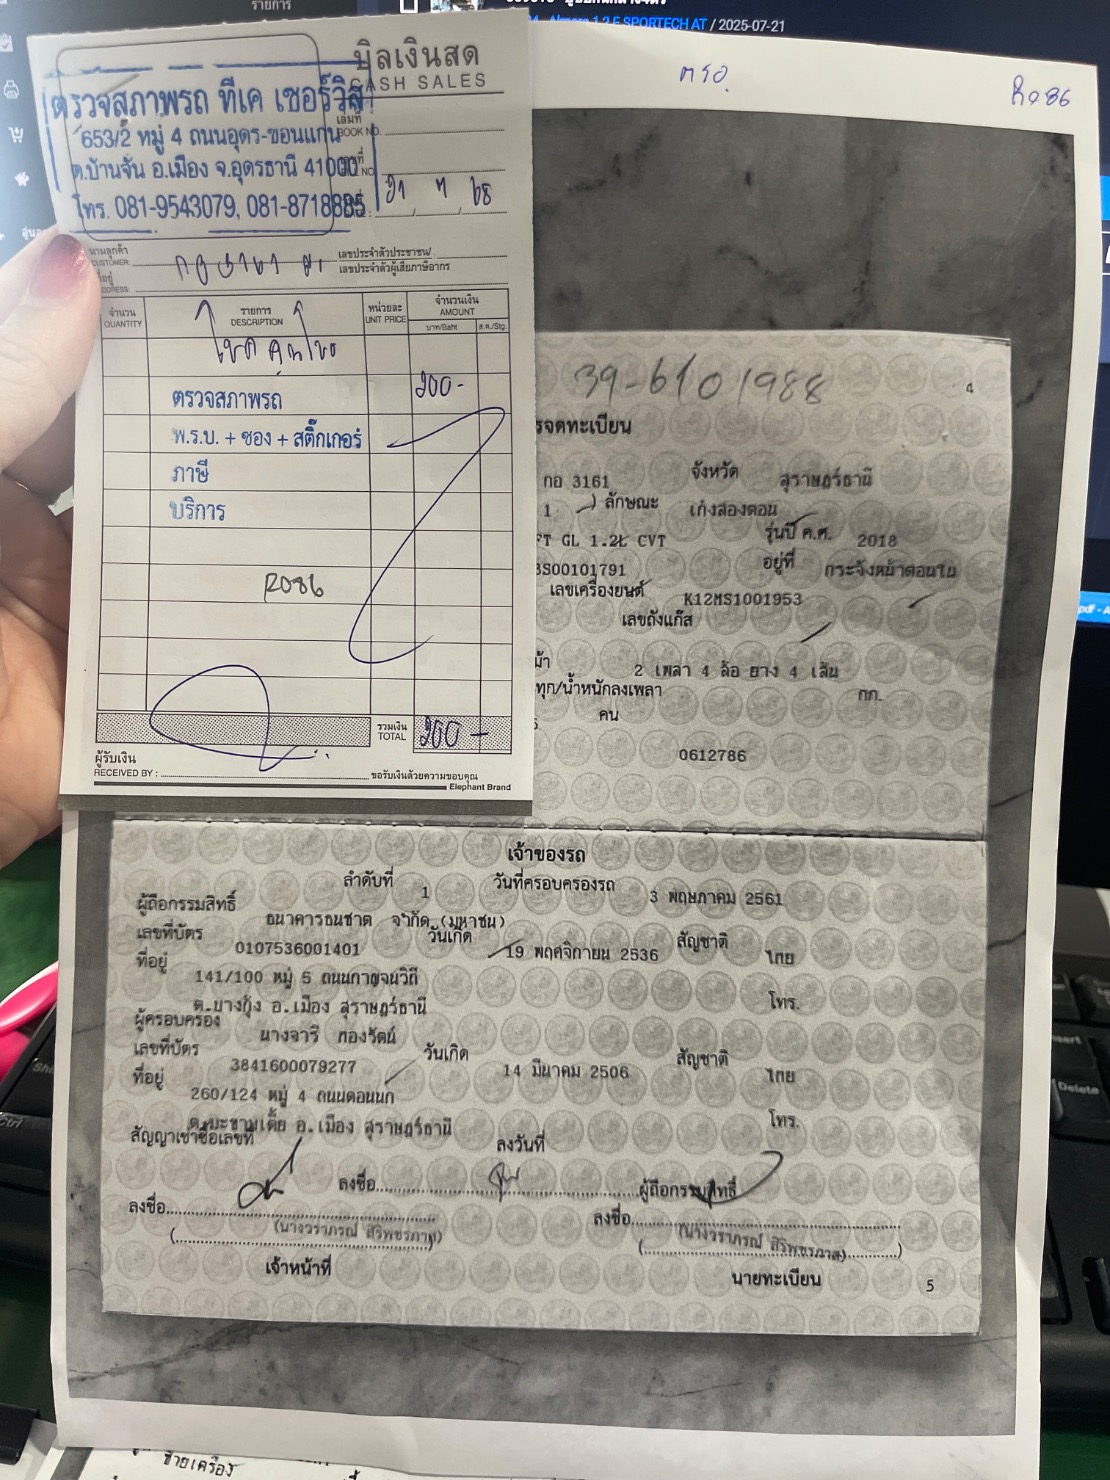 รายการ
Almera 1.2 E SPORTECH AT / 2025-07-21
บิลเงินสด
CASH SALES
ตรวจสภาพรถ ทีเค เซอร์วิส
653/2 หมู่ 4 ถนนอุดร-ขอนแก่น
ต.บ้านจั่น อ.เมือง จ.อุดรธานี 41000
โทร. 081-9543079, 081-8718885
เล่มที่
BOOK NO.
21 7 68
นามลูกค้า
CUSTOMER:
เลขประจำตัวประชาชน/
เลขประจำตัวผู้เสียภาษีอากร
ที่อยู่
ADDRESS:
จำนวน
QUANTITY
รายการ
DESCRIPTION
หน่วยละ
UNIT PRICE
จำนวนเงิน
AMOUNT
บาท/Baht
ส.ต./Stg.
ตรวจสภาพรถ
200-
พ.ร.บ. + ซอง + สติ๊กเกอร์
ภาษี
บริการ
R086
รวมเงิน
TOTAL
200-
ผู้รับเงิน
RECEIVED BY :
ขอรับเงินด้วยความขอบคุณ
Elephant Brand
ตรอ.
R086
39-6101988
4
รจดทะเบียน
กอ 3161 จังหวัด สุราษฎร์ธานี
1 ลักษณะ เก๋งสองตอน
FT GL 1.2L CVT รุ่นปี ค.ศ. 2018
3S00101791 อยู่ที่ กระจังหน้าตอนใน
เลขเครื่องยนต์ K12MS1001953
เลขถังแก๊ส
2 เพลา 4 ล้อ ยาง 4 เส้น
ทุก/น้ำหนักลงเพลา กก.
คน
0612786
เจ้าของรถ
ลำดับที่ 1 วันที่ครอบครองรถ 3 พฤษภาคม 2561
ผู้ถือกรรมสิทธิ์ ธนาคารธนชาต จำกัด (มหาชน)
เลขที่บัตร 0107536001401 วันเกิด 19 พฤศจิกายน 2536 สัญชาติ ไทย
ที่อยู่ 141/100 หมู่ 5 ถนนกาญจนวิถี
ต.บางกุ้ง อ.เมือง สุราษฎร์ธานี โทร.
ผู้ครอบครอง นางจารี ทองรัตน์
เลขที่บัตร 3841600079277 วันเกิด 14 มีนาคม 2506 สัญชาติ ไทย
ที่อยู่ 260/124 หมู่ 4 ถนนดอนนก
ต.มะขามเตี้ย อ.เมือง สุราษฎร์ธานี โทร.
สัญญาเช่าซื้อเลขที่ ลงวันที่
ลงชื่อ ผู้ถือกรรมสิทธิ์
ลงชื่อ ลงชื่อ
(นางวราภรณ์ สิริพชรภาส) (นางวราภรณ์ สิริพชรภาส)
เจ้าหน้าที่ นายทะเบียน
5
Insert
Delete
Shift
Ctrl
ซ้ายเครื่อง